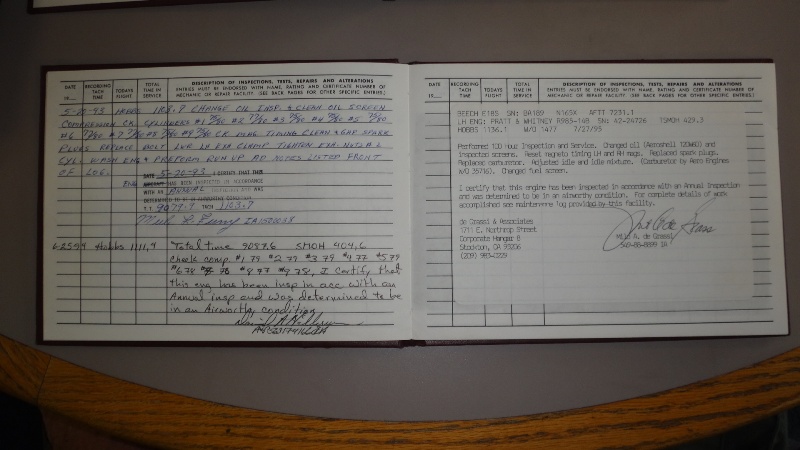 DATE RECORDING TACH TIME TODAYS FLIGHT TOTAL TIME IN SERVICE DESCRIPTION OF INSPECTIONS, TESTS, REPAIRS AND ALTERATIONS
ENTRIES MUST BE ENDORSED WITH NAME, RATING AND CERTIFICATE NUMBER OF
MECHANIC OR REPAIR FACILITY. (SEE BACK PAGES FOR OTHER SPECIFIC ENTRIES.)
19
5-20-93 1103.7 CHANGE OIL INSP. & CLEAN OIL SCREEN
COMPRESSION CK. CYLINDERS #1 #2 #3 #4 #5
#6 #7 #8 #9 CK. MAG. TIMING CLEAN & GAP SPARK
PLUGS REPLACE BOLT LWR LH EXH CLAMP TIGHTEN EXH. NUTS &
CYL. WASH ENG & PREFORM RUN UP AD NOTES LISTED FRONT
OF LOG.
DATE 5-20-93 I CERTIFY THAT THIS
ENG HAS BEEN INSPECTED IN ACCORDANCE
WITH AN ANNUAL INSPECTION AND WAS
DETERMINED TO BE IN AIRWORTHY CONDITION
T.T. 9079.7 TACH 1103.7
Hobbs 1111.4 Total time 9087.6 SMOH 404.6
Check comp. #1 79 #2 79 #3 79 #4 77 #5 79
#6 78 #7 78 #8 77 #9 78, I certify that
this eng has been insp in acc with an
Annual insp and was determined to be
in an Airworthy condition
DATE RECORDING TACH TIME TODAYS FLIGHT TOTAL TIME IN SERVICE DESCRIPTION OF INSPECTIONS, TESTS, REPAIRS AND ALTERATIONS
ENTRIES MUST BE ENDORSED WITH NAME, RATING AND CERTIFICATE NUMBER OF
MECHANIC OR REPAIR FACILITY. (SEE BACK PAGES FOR OTHER SPECIFIC ENTRIES.)
19
BEECH E18S SN: BA189 N165X AFTT 7231.1
LH ENG: PRATT & WHITNEY R985-14B SN: 42-24726 TSMOH 429.3
HOBBS 1136.1 W/O 1477 7/27/95
Performed 100 Hour Inspection and Service. Changed oil (Aeroshell 120W60) and
inspected screens. Reset magneto timing LH and RH mags. Replaced spark plugs.
Replaced carburetor. Adjusted idle and idle mixture. (Carburetor by Aero Engines
W/O 35716). Changed fuel screen.
I certify that this engine has been inspected in accordance with an Annual Inspection
and was determined to be in an airworthy condition. For complete details of work
accomplished see maintenance log provided by this facility.
de Grassi & Associates
1711 E. Northrop Street
Corporate Hangar B
Stockton, CA 95206
(209) 983-0229
Milo A. de Grassi